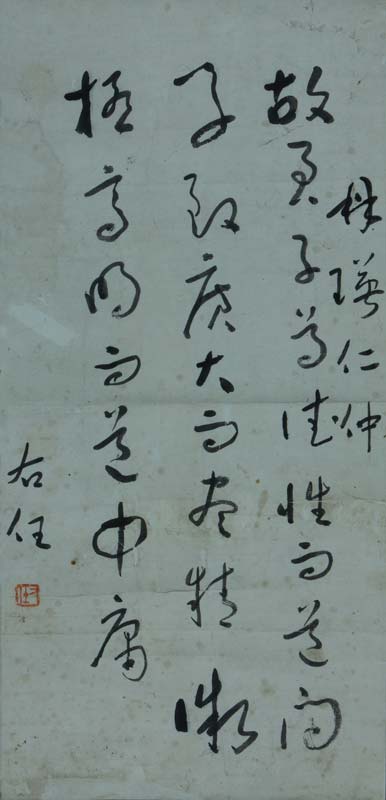 瑛仁仲
故君子尊德性而道問
學致廣大而盡精微
極高明而道中庸
右任